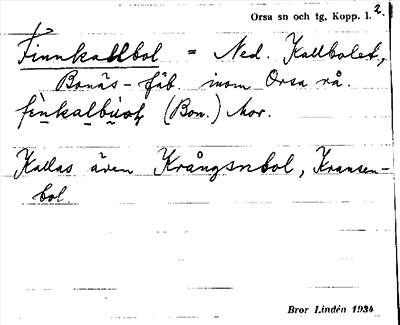 Orsa sn och tg, Kopp. l. 2.
Finnkallbol = Ned. Kallbolet,
Bonäs-fäb inom Orsa rå.
(Bon.) Mor.
Kallas även Krångsnbol, Kransen-
bol.
Bror Lindén 1934